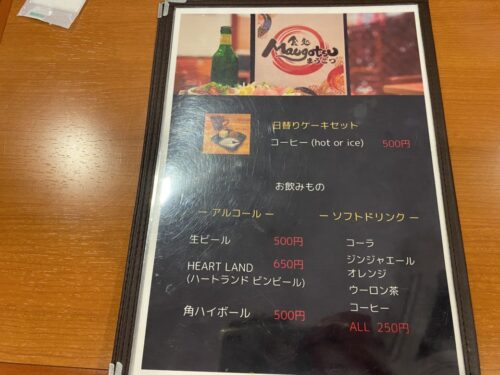 食処
Maugotsu
まうごつ
日替りケーキセット
コーヒー (hot or ice) 500円
お飲みもの
ー アルコール ー
生ビール 500円
HEART LAND 650円
(ハートランド ビンビール)
角ハイボール 500円
ー ソフトドリンク ー
コーラ
ジンジャエール
オレンジ
ウーロン茶
コーヒー
ALL 250円